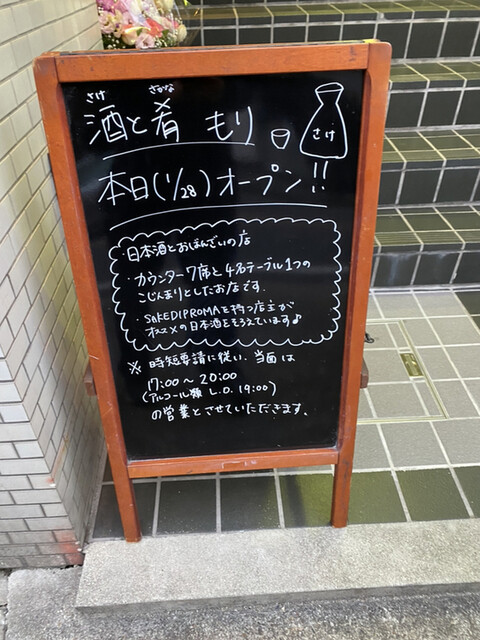 さけ さかな
酒と肴 もり
さけ
本日(1/28)オープン!!
・日本酒とおばんざいの店
・カウンター7席と4名テーブル1つの
こじんまりとしたお店です.
・SAKEDIPROMAを持つ店主が
オススメの日本酒をそろえています♪
※ 時短要請に従い、当面は
17:00〜20:00
(アルコール類 L.O. 19:00)
の営業とさせていただきます.